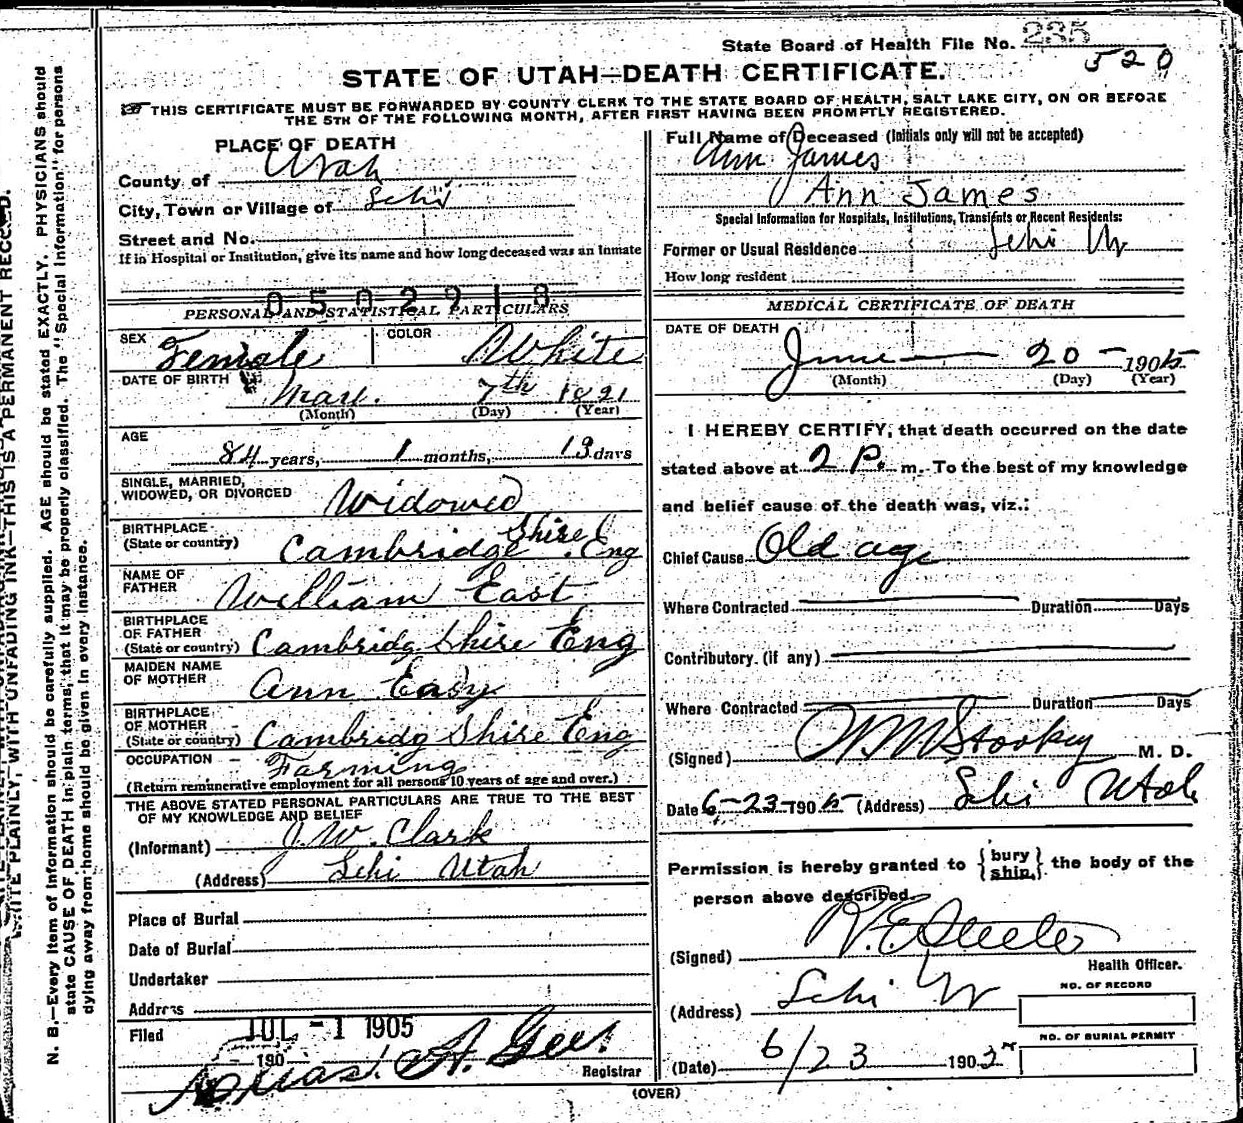 State Board of Health File No. 235
520
STATE OF UTAH—DEATH CERTIFICATE.
THIS CERTIFICATE MUST BE FORWARDED BY COUNTY CLERK TO THE STATE BOARD OF HEALTH, SALT LAKE CITY, ON OR BEFORE
THE 5TH OF THE FOLLOWING MONTH, AFTER FIRST HAVING BEEN PROMPTLY REGISTERED.
PLACE OF DEATH
County of Utah
City, Town or Village of Lehi
Street and No.
If in Hospital or Institution, give its name and how long deceased was an Inmate
Full Name of Deceased (Initials only will not be accepted)
Ann James
Ann James
Special Information for Hospitals, Institutions, Transients or Recent Residents:
Former or Usual Residence Lehi Ut
How long resident
0502918
PERSONAL AND STATISTICAL PARTICULARS
SEX Female COLOR White
DATE OF BIRTH Mar. 7th 1821
(Month) (Day) (Year)
AGE
84 years, 1 months, 13 days
SINGLE, MARRIED,
WIDOWED, OR DIVORCED Widowed
BIRTHPLACE
(State or country) Cambridge Shire Eng
NAME OF
FATHER William East
BIRTHPLACE
OF FATHER
(State or country) Cambridg Shire Eng
MAIDEN NAME
OF MOTHER Ann Easy
BIRTHPLACE
OF MOTHER
(State or country) Cambridg Shire Eng
OCCUPATION Farming
(Return remunerative employment for all persons 10 years of age and over.)
THE ABOVE STATED PERSONAL PARTICULARS ARE TRUE TO THE BEST
OF MY KNOWLEDGE AND BELIEF
(Informant) J. W. Clark
(Address) Lehi Utah
Place of Burial
Date of Burial
Undertaker
Address
Filed JUL -1 1905
190
A. Gee.
Registrar
MEDICAL CERTIFICATE OF DEATH
DATE OF DEATH
June 20 1905
(Month) (Day) (Year)
I HEREBY CERTIFY, that death occurred on the date
stated above at 2 P. m. To the best of my knowledge
and belief cause of the death was, viz.:
Chief Cause Old age
Where Contracted Duration Days
Contributory (if any)
Where Contracted Duration Days
(Signed) Stookey M. D.
Date 6-23-1905 (Address) Lehi Utah
Permission is hereby granted to {bury ship} the body of the
person above described.
(Signed) R. E. Steele
Health Officer.
(Address) Lehi Ut
NO. OF RECORD
NO. OF BURIAL PERMIT
(Date) 6/23 1905
(OVER)
N. B.—Every item of information should be carefully supplied. AGE should be stated EXACTLY. PHYSICIANS should
state CAUSE OF DEATH in plain terms, that it may be properly classified. The "Special Information" for persons
dying away from home should be given in every instance.
WRITE PLAINLY, WITH UNFADING INK—THIS IS A PERMANENT RECORD.